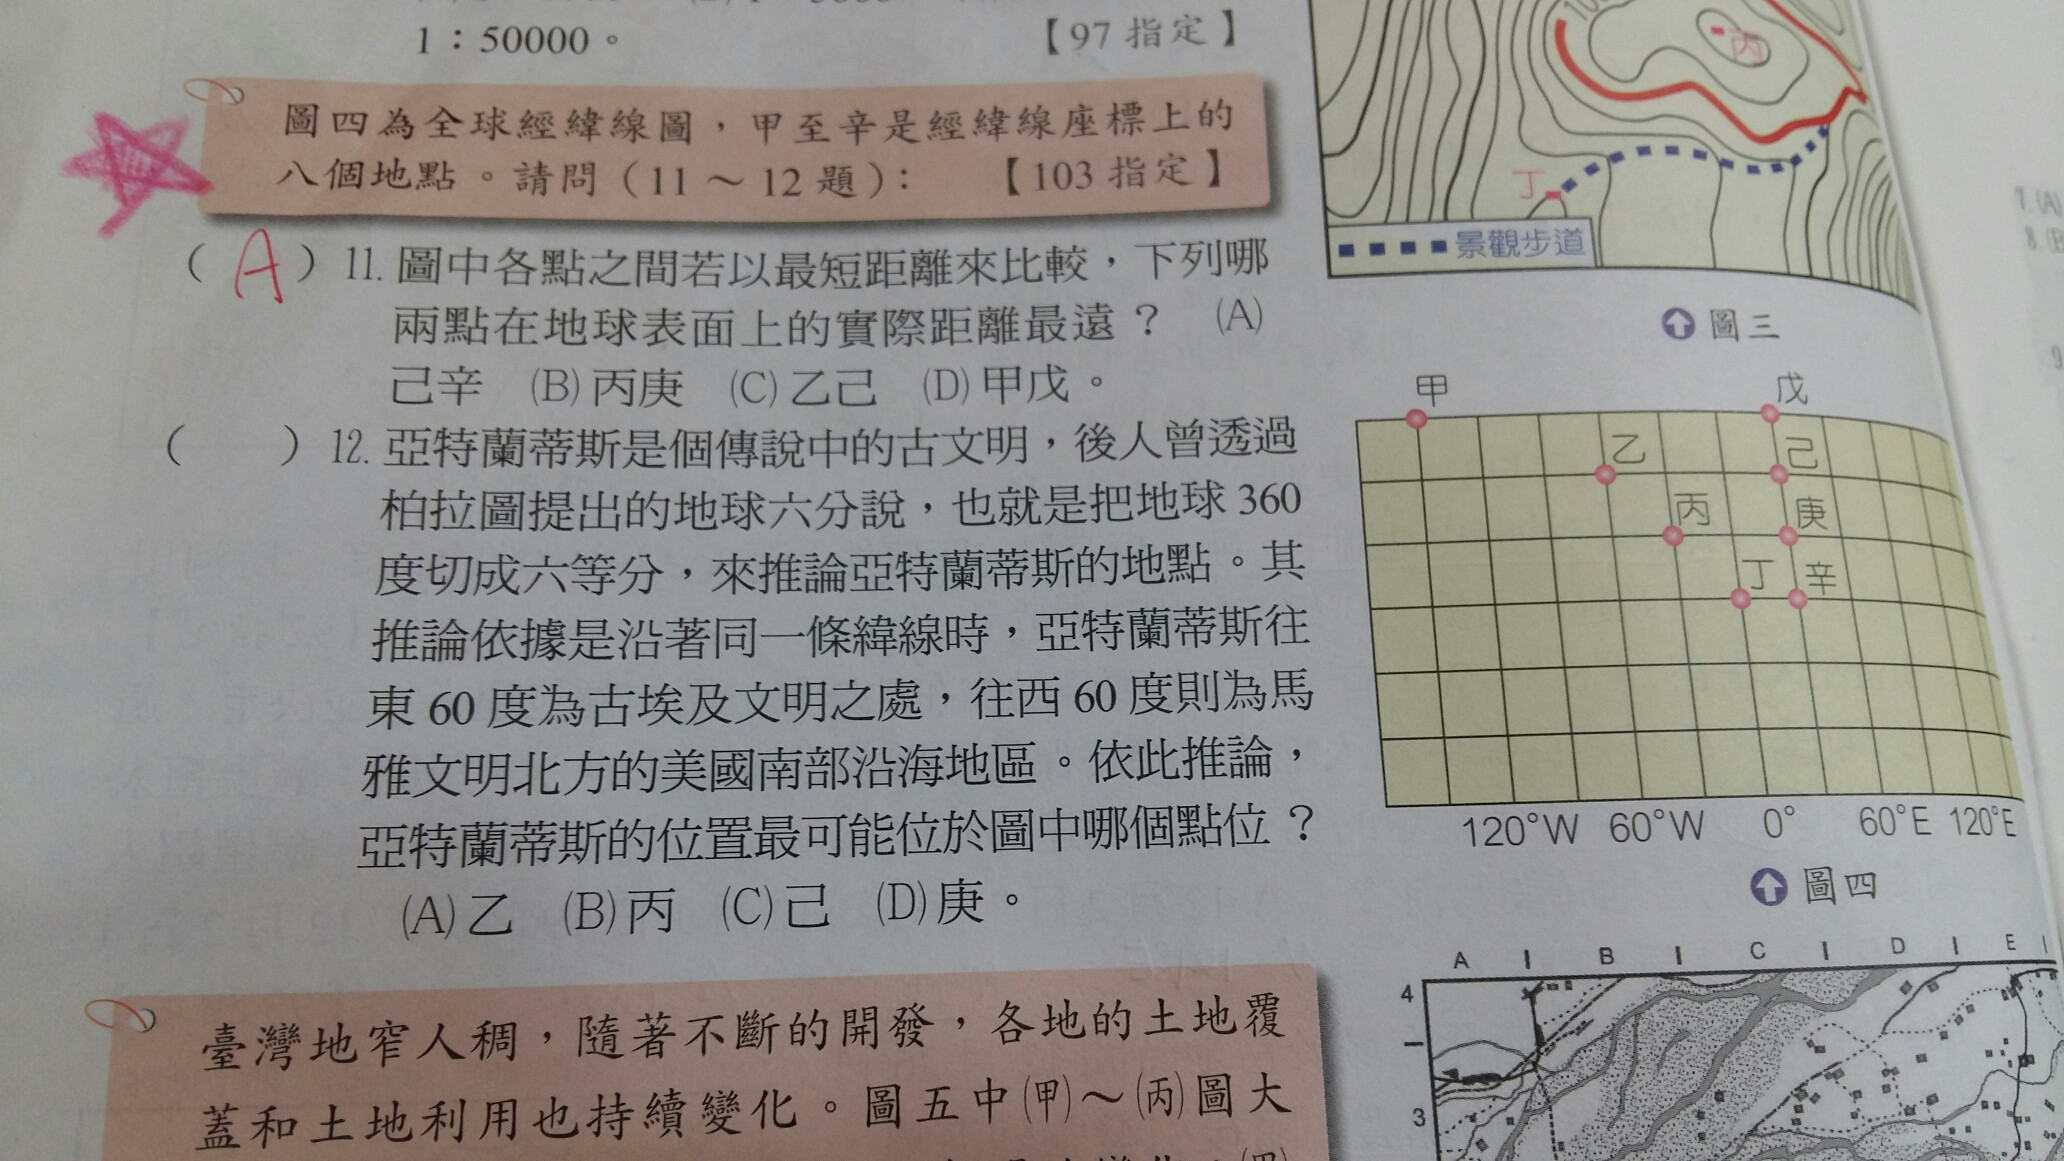 1：50000。 【97 指定】
圖四為全球經緯線圖，甲至辛是經緯線座標上的
八個地點。請問（11～12 題）： 【103 指定】
（ A ）11. 圖中各點之間若以最短距離來比較，下列哪
兩點在地球表面上的實際距離最遠？ (A)
己辛 (B)丙庚 (C)乙己 (D)甲戊。
（ ）12. 亞特蘭蒂斯是個傳說中的古文明，後人曾透過
柏拉圖提出的地球六分說，也就是把地球 360
度切成六等分，來推論亞特蘭蒂斯的地點。其
推論依據是沿著同一條緯線時，亞特蘭蒂斯往
東 60 度為古埃及文明之處，往西 60 度則為馬
雅文明北方的美國南部沿海地區。依此推論，
亞特蘭蒂斯的位置最可能位於圖中哪個點位？
(A)乙 (B)丙 (C)己 (D)庚。
臺灣地窄人稠，隨著不斷的開發，各地的土地覆
蓋和土地利用也持續變化。圖五中(甲)～(丙)圖大
丙
丁
景觀步道
圖三
甲 戊
乙 己
丙 庚
丁 辛
120°W 60°W 0° 60°E 120°E
圖四
A B C D E
4
3
7.(A)